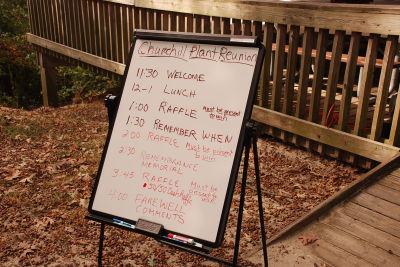 Churchill Plant Reunion
11:30 WELCOME
12-1 LUNCH
1:00 RAFFLE must be present to win
1:30 REMEMBER WHEN
2:00 RAFFLE Must be present to win
2:30 REMEMBRANCE MEMORIAL
3:45 RAFFLE Must be present to win
50/50 Cash Raffle
4:00 FAREWELL COMMENTS